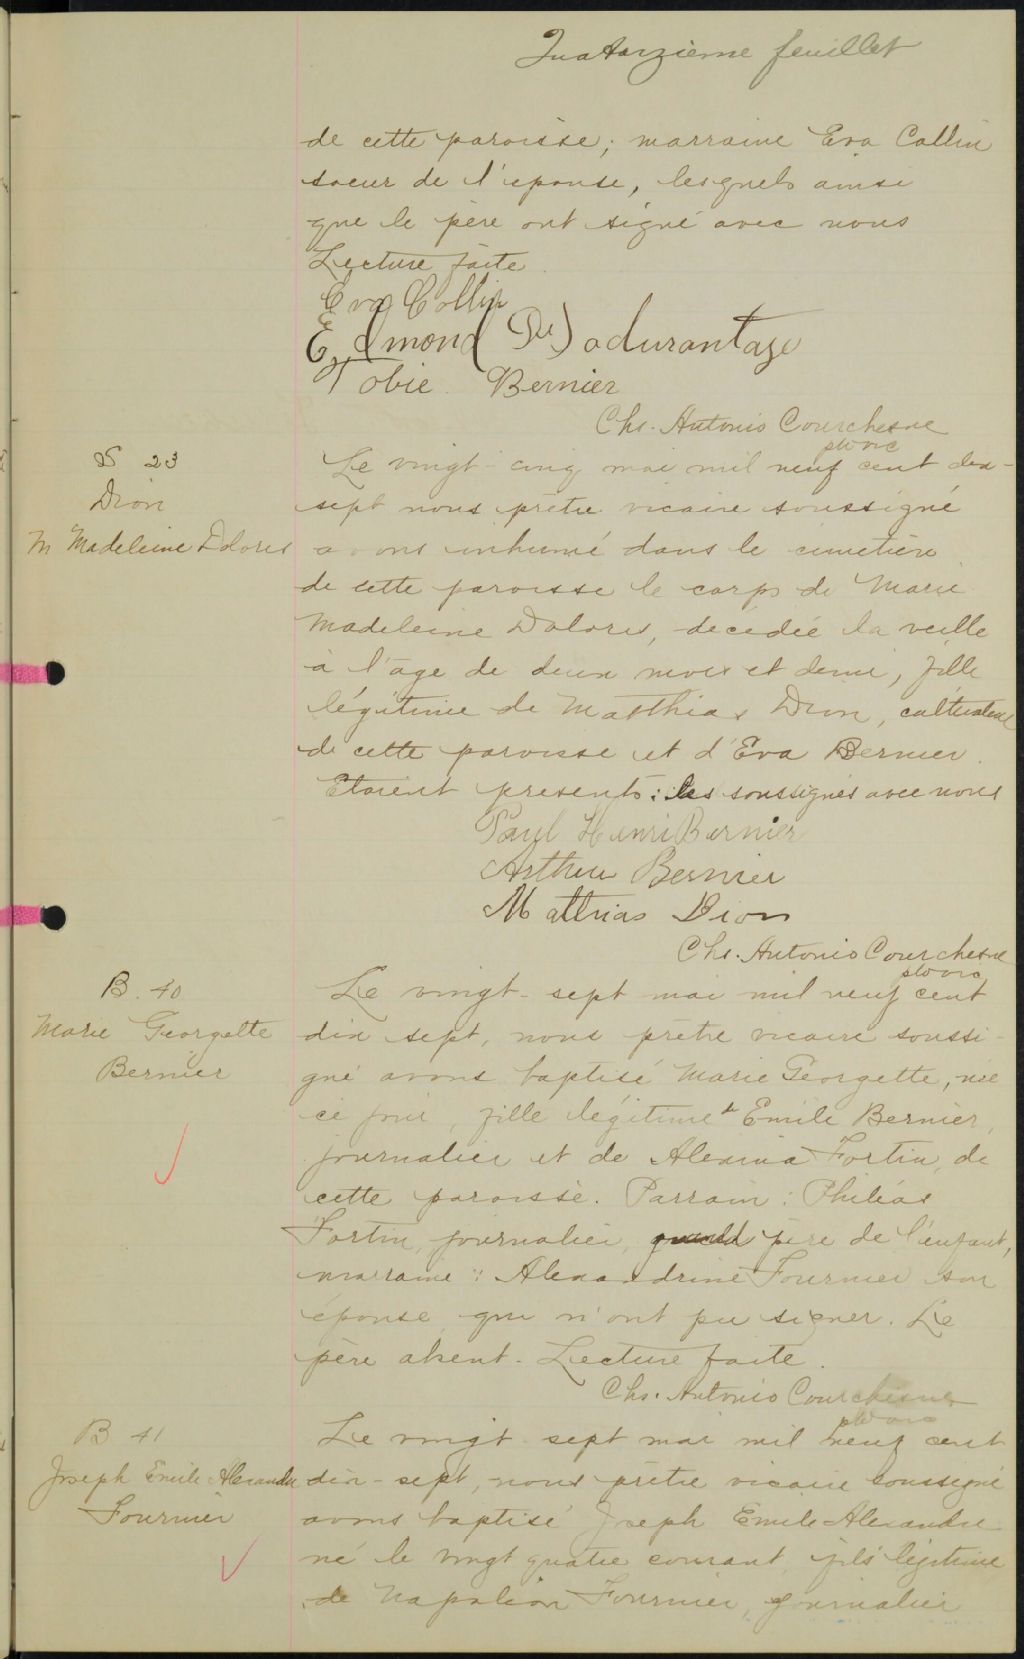 Quatorzieme feuillet
de cette paroisse; marraine Eva Collin
soeur de l'epouse, lesquels ainsi
que le père ont signé avec nous
Lecture faite.
Eva Collin
Edmond Durantaye
Tobie Bernier
Chs. Antonio Courchesne
ptre vic
S 23
Dion
M Madeleine Dolores
Le vingt-cinq mai mil neuf cent dix-
sept nous prêtre vicaire soussigné
avons inhumé dans le cimetière
de cette paroisse le corps de Marie
Madeleine Dolores, decedée la veille
à l'âge de deux mois et demi, fille
légitime de Matthias Dion, cultivateur
de cette paroisse et d'Eva Bernier.
Etaient presents: les soussignés avec nous
Paul Henri Bernier
Arthur Bernier
Mathias Dion
Chs. Antonio Courchesne
ptre vic
B. 40
Marie Georgette
Bernier
Le vingt-sept mai mil neuf cent
dix sept, nous prêtre vicaire soussi-
gné avons baptisé Marie Georgette, née
ce jour, fille légitime d'Emile Bernier,
journalier et de Alexina Fortin, de
cette paroisse. Parrain: Philéas
Fortin, journalier, grand père de l'enfant,
marraine: Alexandrine Fournier son
épouse qui n'ont pu signer. Le
père absent. Lecture faite.
Chs. Antonio Courchesne
ptre vic
B 41
Joseph Emile Alexandre
Fournier
Le vingt-sept mai mil neuf cent
dix-sept, nous prêtre vicaire soussigné
avons baptisé Joseph Emile Alexandre
né le vingt quatre courant, fils légitime
de Napoléon Fournier, journalier